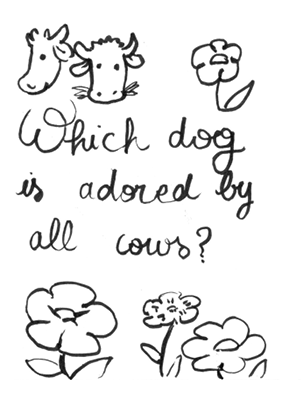 Which dog
is adored by
all cows?